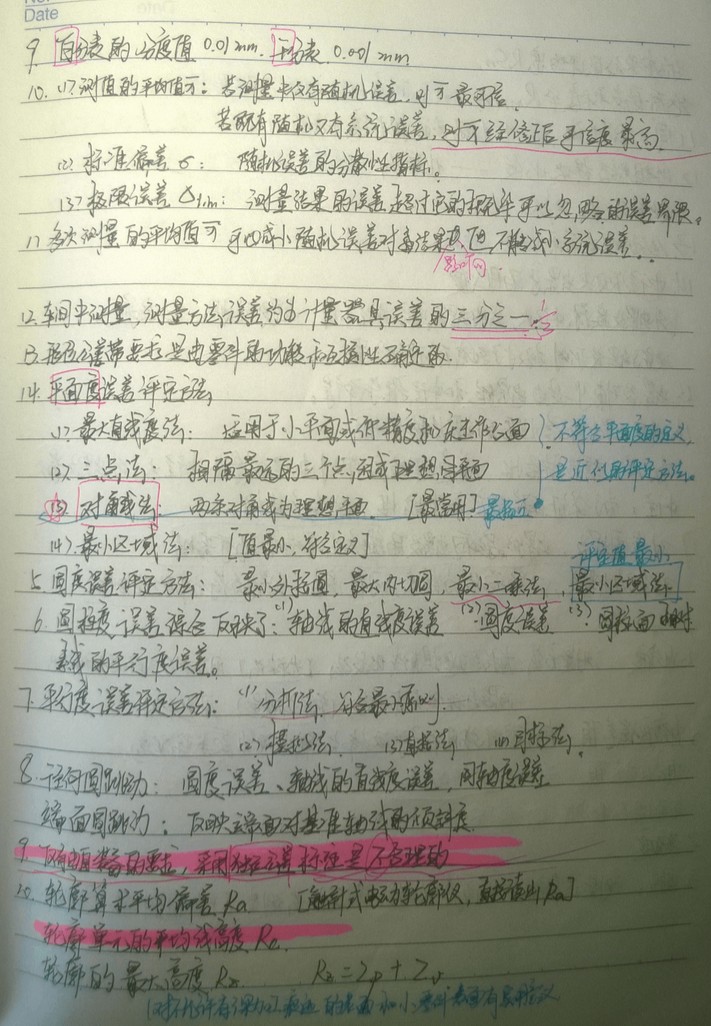 Date
9. 百分表的分度值 0.01mm. 千分表 0.001mm
10. (1) 测值的平均值x̄: 若测量中仅有随机误差, 则x̄最可信.
若既有随机又有系统误差, 则x̄经修正后可信度最高.
(2) 标准偏差σ: 随机误差的分散性指标。
(3) 极限误差Δlim: 测量结果的误差超过它的概率可以忽略的误差界限.
11. 多次测量的平均值x̄可以减小随机误差对结果 但不能减小系统误差.
影响
12. 车间中测量, 测量方法误差约为计量器具误差的三分之一 1/3
13. 形位公差带要求是由零件的功能和互换性确定的.
14. 平面度误差评定方法
(1) 最大直线度法: 适用于小平面或低精度和 工作面 不符合平面度的定义,
(2) 三点法: 相隔最远的三个点, 组成理想平面 是近似的评定方法。
(3) 对角线法: 两条对角线为理想平面 [最常用] 最接近
(4) 最小区域法: [值最小, 符合定义] 评定值最小
5. 圆度误差评定方法: 最小外接圆, 最大内切圆, 最小二乘法, 最小区域法
6. 圆柱度误差综合反映了: (1) 轴线的直线度误差 (2) 圆度误差 (3) 圆柱面相对
素线的平行度误差。
7. 平行度误差评定方法: (1) 分析法, 符合最小原则.
(2) 模拟法. (3) 直接法 (4) 目标法.
8. 径向圆跳动: 圆度误差、轴线的直线度误差, 同轴度误差
端面圆跳动: 反映端面对基准轴线的倾斜度
9. 对有 的要求, 采用独立公差标注是不合理的
10. 轮廓算术平均偏差 Ra [触针式电动轮廓仪, 直接读出Ra]
轮廓单元的平均线高度 Rc
轮廓的最大高度 Rz Rz=Zp+Zv
对不允许有 的表面和小零件表面有实用意义